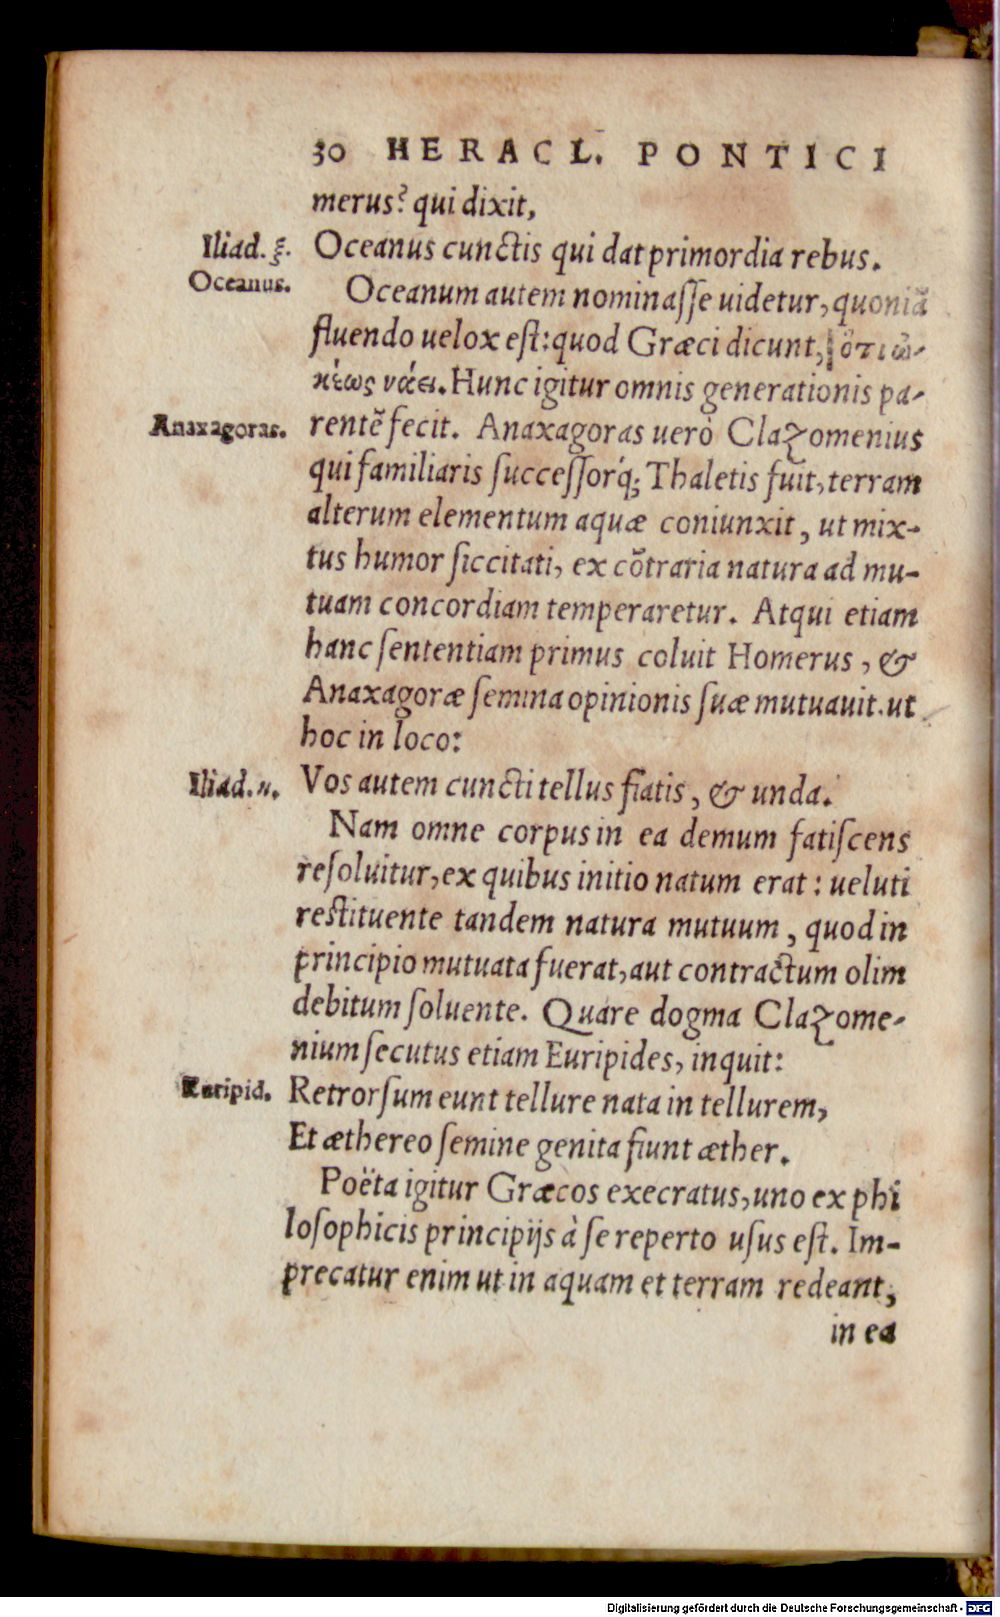 30 HERACL. PONTICI
merus? qui dixit,
Iliad. ξ. Oceanus cunctis qui dat primordia rebus.
Oceanus. Oceanum autem nominaſſe uidetur, quoniã
fluendo uelox eſt: quod Græci dicunt, ὅτι ὠ-
κέως νάει. Hunc igitur omnis generationis pa-
Anaxagoras. rentẽ fecit. Anaxagoras uerò Clazomenius
qui familiaris ſucceſſorq́; Thaletis fuit, terram
alterum elementum aquæ coniunxit, ut mix-
tus humor ſiccitati, ex cõtraria natura ad mu-
tuam concordiam temperaretur. Atqui etiam
hanc ſententiam primus coluit Homerus, &
Anaxagoræ ſemina opinionis ſuæ mutuauit. ut
hoc in loco:
Iliad. η. Vos autem cuncti tellus fiatis, & unda.
Nam omne corpus in ea demum fatiſcens
reſoluitur, ex quibus initio natum erat: ueluti
reſtituente tandem natura mutuum, quod in
principio mutuata fuerat, aut contractum olim
debitum ſoluente. Quare dogma Clazome-
nium ſecutus etiam Euripides, inquit:
Euripid. Retrorſum eunt tellure nata in tellurem,
Et æthereo ſemine genita fiunt æther.
Poëta igitur Græcos execratus, uno ex phi
loſophicis principijs à ſe reperto uſus eſt. Im-
precatur enim ut in aquam et terram redeant,
in ea
Digitalisierung gefördert durch die Deutsche Forschungsgemeinschaft - DFG